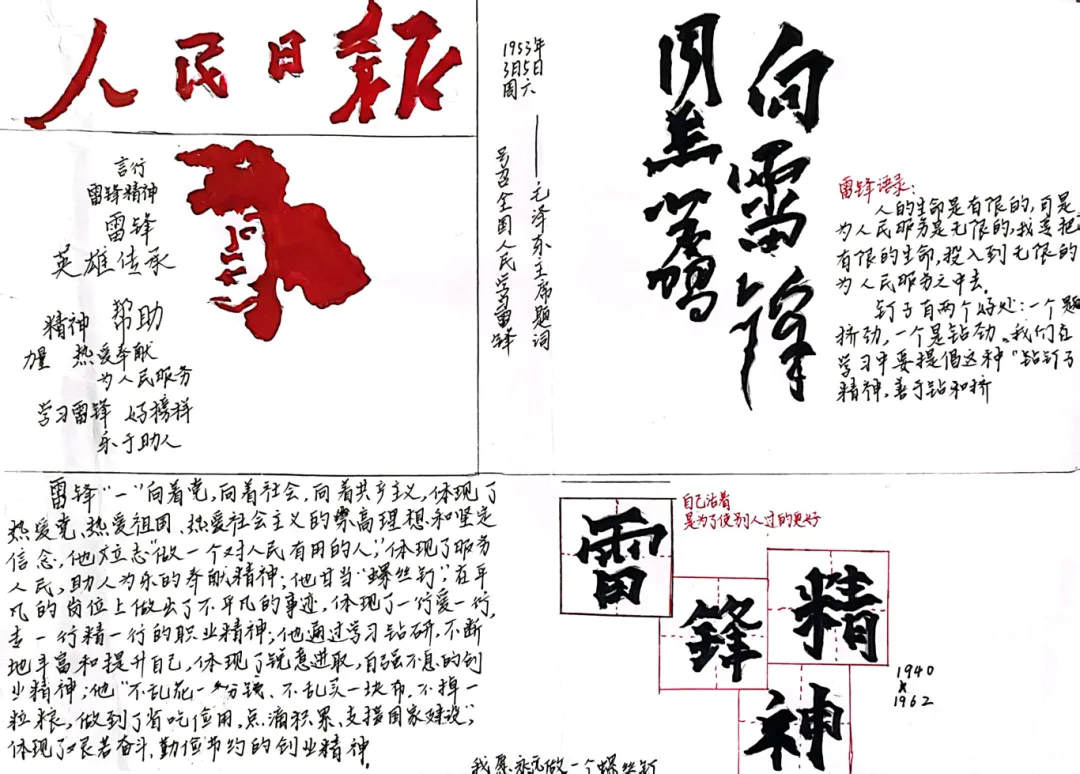 人民日报
言行
雷锋精神
雷锋
英雄传承
精神 帮助
力量 热爱奉献
为人民服务
学习雷锋 好榜样
乐于助人
1953年
3月5日
周六
——毛泽东主席题词
号召全国人民学习雷锋
向雷锋
同志学习
雷锋语录:
人的生命是有限的,可是
为人民服务是无限的,我要把
有限的生命,投入到无限的
为人民服务之中去。
钉子有两个好处:一个是
挤劲,一个是钻劲。我们在
学习中要提倡这种“钻钉子
精神,善于钻和挤
雷锋“一”向着党,向着社会,向着共产主义,体现了
热爱党、热爱祖国、热爱社会主义的崇高理想和坚定
信念,他立志“做一个对人民有用的人”,体现了服务
人民,助人为乐的奉献精神;他甘当“螺丝钉”,在平
凡的岗位上做出了不平凡的事迹,体现了一行爱一行,
专一行精一行的职业精神;他通过学习钻研,不断
地丰富和提升自己,体现了锐意进取,自强不息的创
业精神;他“不乱花一分钱、不乱买一块布,不掉一
粒粮,做到了省吃俭用,点滴积累、支援国家建设”,
体现了艰苦奋斗,勤俭节约的创业精神。
自己活着
是为了使别人过的更好
雷锋精神
1940
1962
我愿永远做一个螺丝钉